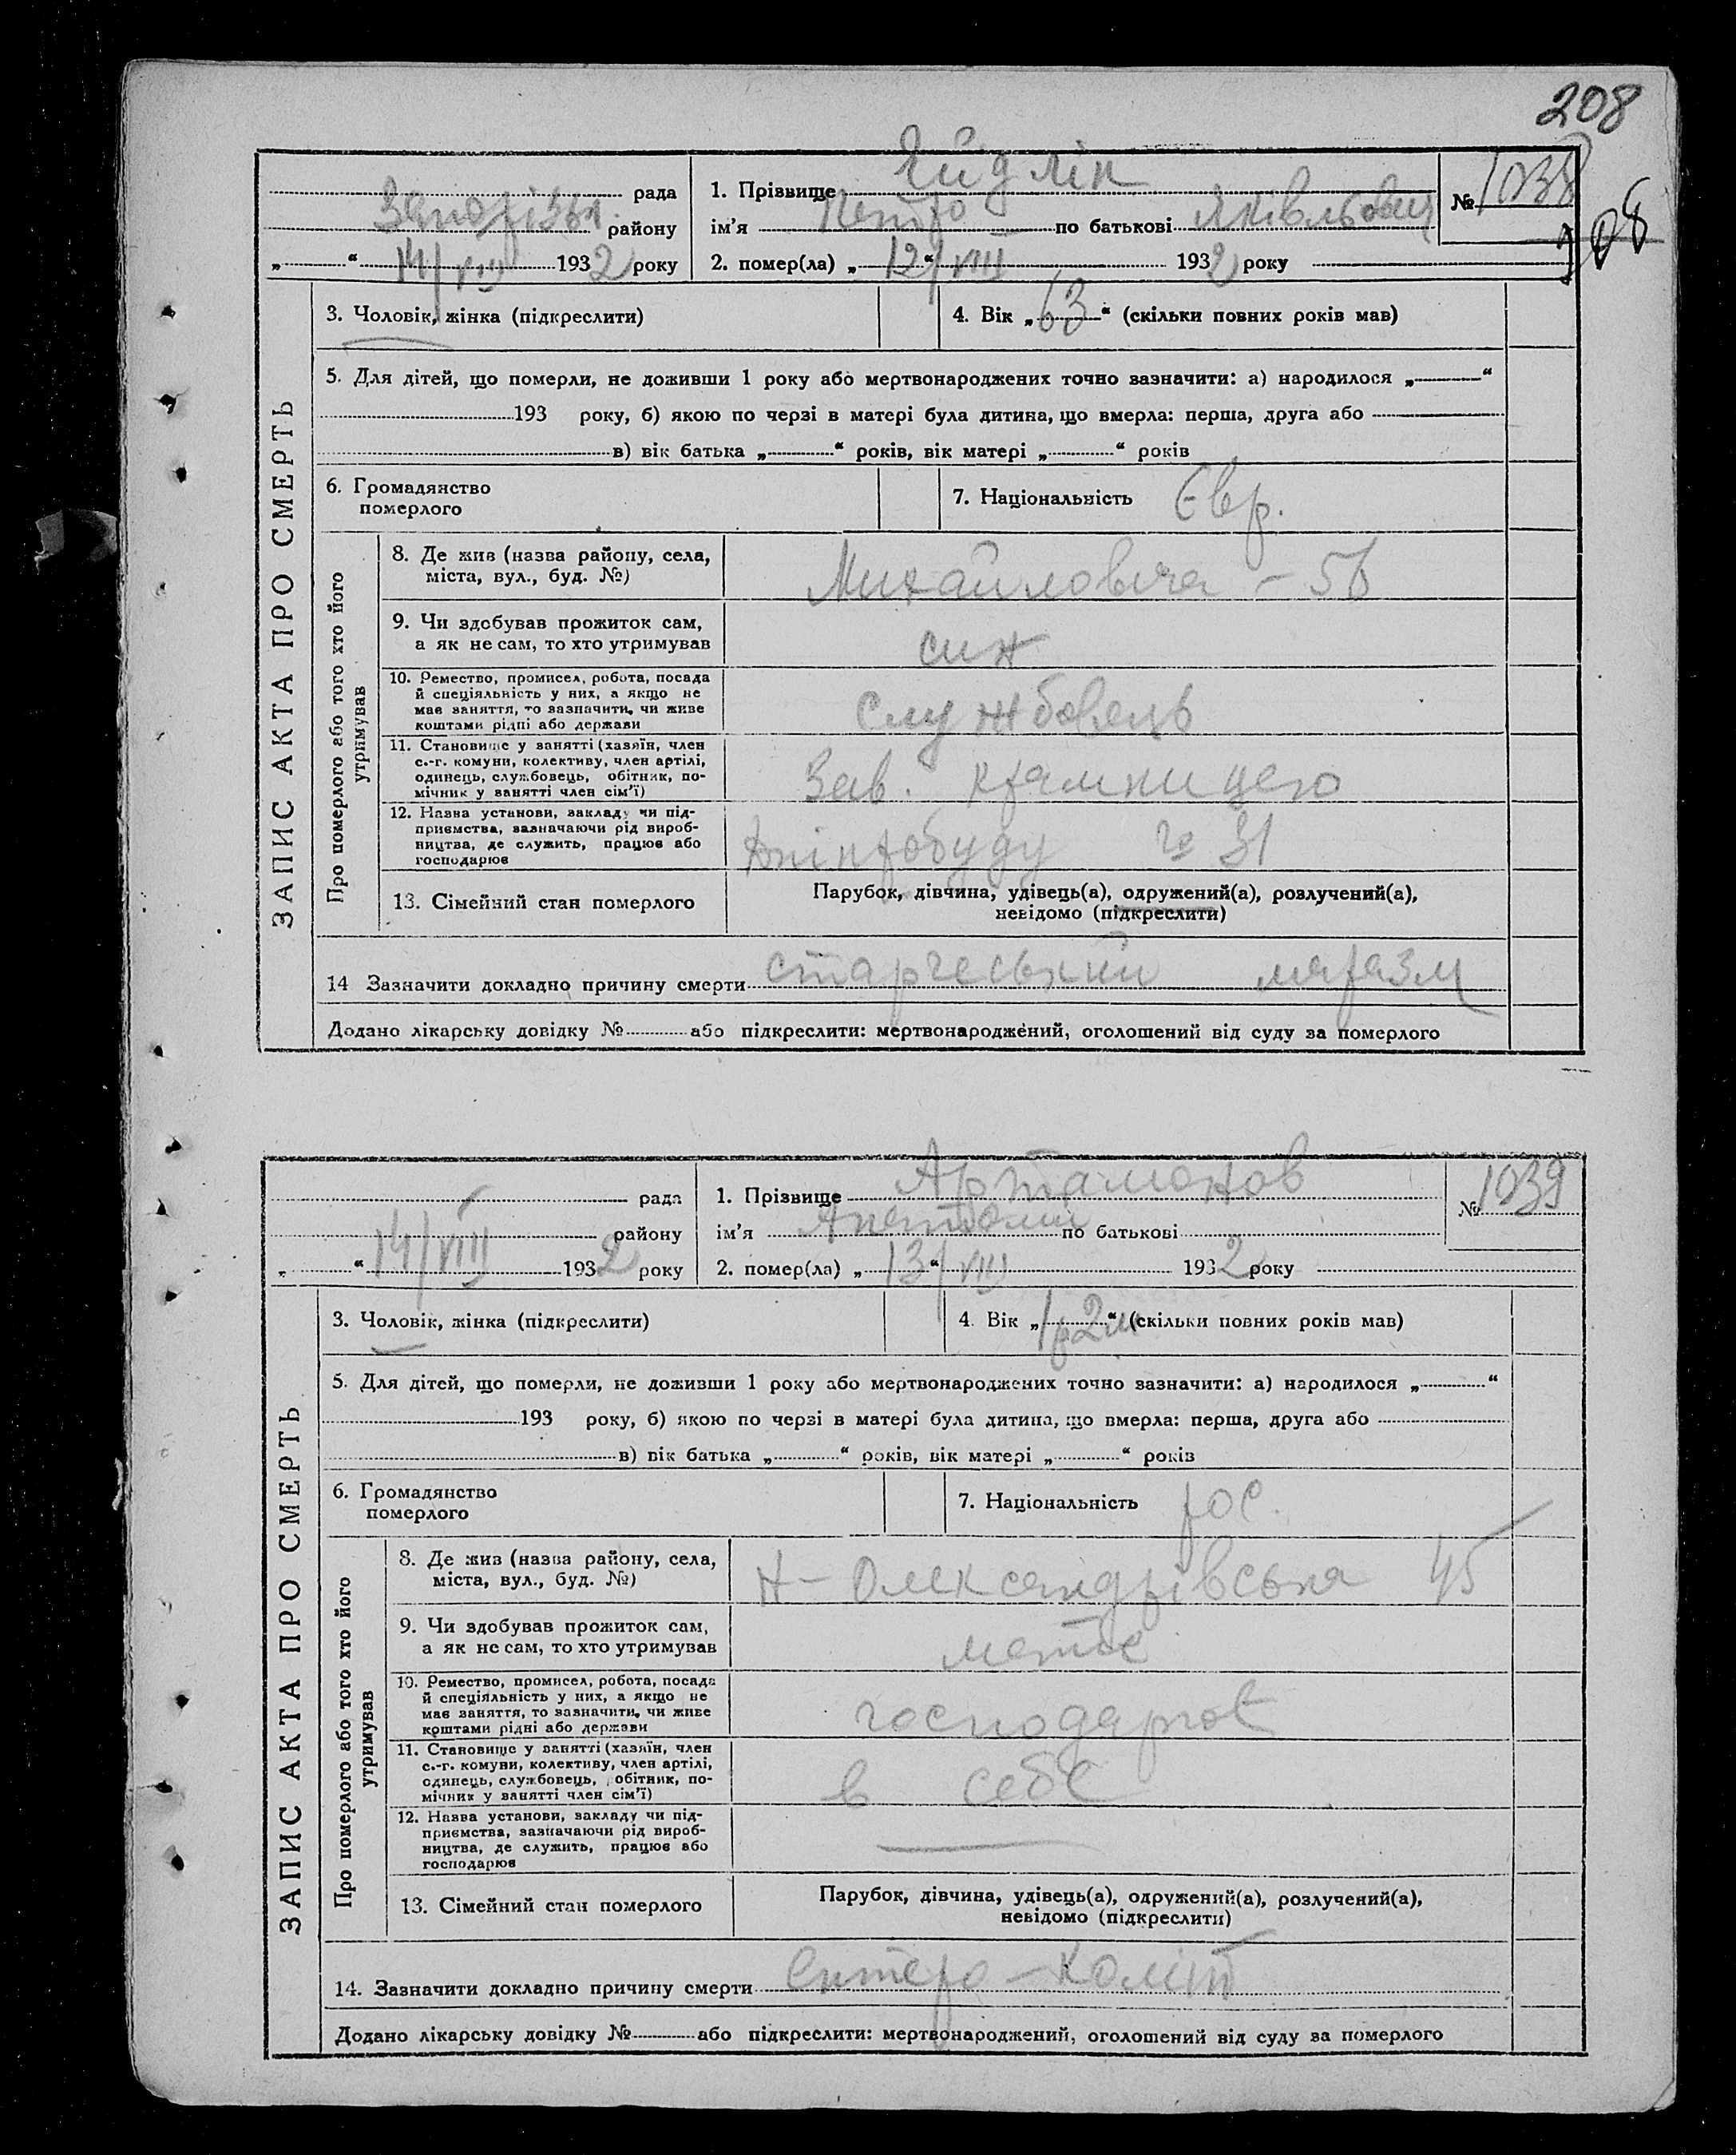 208
рада 1. Прізвище Гидлін № 1038
Запоріжжя району ім'я Петро по батькові Яківльович 208
„ “ 14/VIII 1932 року 2. помер(ла) „12“/VIII 1932 року
ЗАПИС АКТА ПРО СМЕРТЬ
3. Чоловік, жінка (підкреслити) 4. Вік „63“ (скільки повних років мав)
5. Для дітей, що померли, не доживши 1 року або мертвонароджених точно зазначити: а) народилося „ “
193 року, б) якою по черзі в матері була дитина, що вмерла: перша, друга або
в) вік батька „ “ років, вік матері „ “ років
6. Громадянство
померлого
7. Національність Євр.
Про померлого або того хто його
утримував
8. Де жив (назва району, села,
міста, вул., буд. №)
Михайловича – 56
9. Чи здобував прожиток сам,
а як не сам, то хто утримував
син
10. Ремество, промисел, робота, посада
й спеціяльність у них, а якщо не
має заняття, то зазначити, чи живе
коштами рідні або держави
Службовець
11. Становище у занятті (хазяїн, член
с.-г. комуни, колективу, член артілі,
одинець, службовець, обітник, по-
мічник у занятті член сім'ї)
Зав. крамницею
12. Назва установи, закладу чи під-
приємства, зазначаючи рід вироб-
ництва, де служить, працює або
господарює
Дніпробуду № 31
13. Сімейний стан померлого
Парубок, дівчина, удівець(а), одружений(а), розлучений(а),
невідомо (підкреслити)
14 Зазначити докладно причину смерти старческий маразм
Додано лікарську довідку № або підкреслити: мертвонароджений, оголошений від суду за померлого
рада 1. Прізвище Артамонов № 1039
району ім'я Анатолій по батькові
„ “ 14/VIII 1932 року 2. помер(ла) „13“/VIII 1932 року
ЗАПИС АКТА ПРО СМЕРТЬ
3. Чоловік, жінка (підкреслити) 4. Вік „1р2м“ (скільки повних років мав)
5. Для дітей, що померли, не доживши 1 року або мертвонароджених точно зазначити: а) народилося „ “
193 року, б) якою по черзі в матері була дитина, що вмерла: перша, друга або
в) вік батька „ “ років, вік матері „ “ років
6. Громадянство
померлого
7. Національність рос.
Про померлого або того хто його
утримував
8. Де жив (назва району, села,
міста, вул., буд. №)
Н-Олександрівська 45
9. Чи здобував прожиток сам,
а як не сам, то хто утримував
10. Ремество, промисел, робота, посада
й спеціяльність у них, а якщо не
має заняття, то зазначити, чи живе
коштами рідні або держави
господарює
11. Становище у занятті (хазяїн, член
с.-г. комуни, колективу, член артілі,
одинець, службовець, обітник, по-
мічник у занятті член сім'ї)
в себе
12. Назва установи, закладу чи під-
приємства, зазначаючи рід вироб-
ництва, де служить, працює або
господарює
13. Сімейний стан померлого
Парубок, дівчина, удівець(а), одружений(а), розлучений(а),
невідомо (підкреслити)
14. Зазначити докладно причину смерти Ентеро-коліт
Додано лікарську довідку № або підкреслити: мертвонароджений, оголошений від суду за померлого